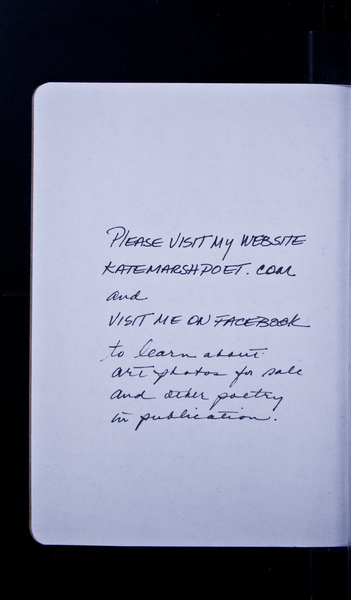 PLEASE VISIT MY WEBSITE
KATEMARSHPOET.COM
and
VISIT ME ON FACEBOOK
to learn about
art photos for sale
and other poetry
in publication.